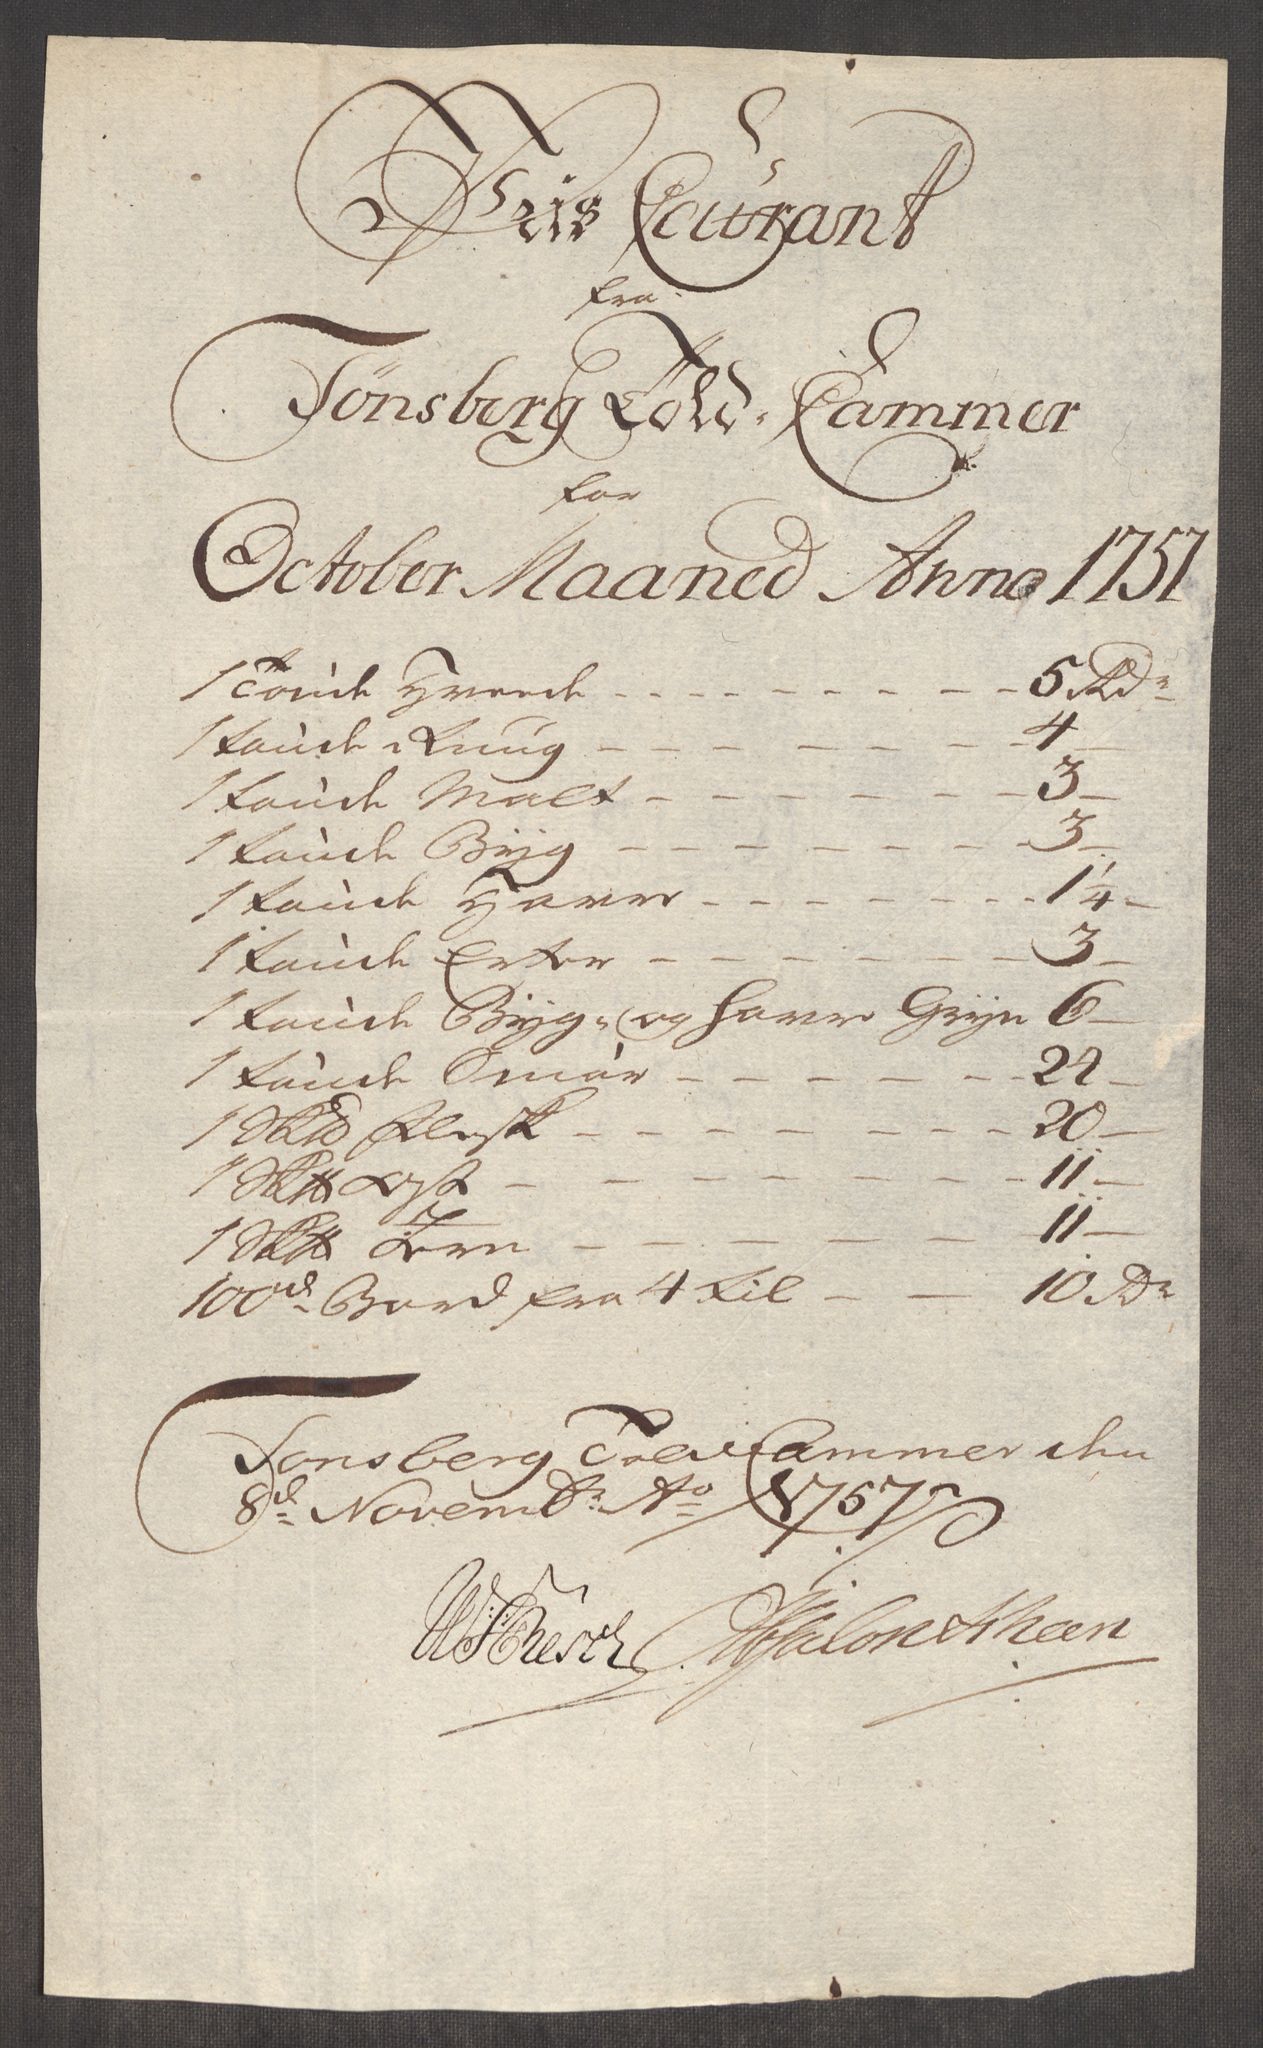 Priis Courant
fra
Tönsberg Told-Cammer
for
October Maaned Anno 1757
1 Tönde Hveede 5 Rdr
1 tönde Rúug 4
1 tönde Malt 3
1 tönde Bÿg 3
1 tönde Havre 1 1/4
1 tönde Erter 3
1 tönde Bÿg- og Havre Grÿn 6
1 tönde Smör 24
1 Sk℔ Flesk 20
1 Sk℔ Ost 11
1 Sk℔ Jern 11
100de Bord fra 4 til 10 Rdr
Tonsberg Told Cammer den
8de Novembr Ao 1757